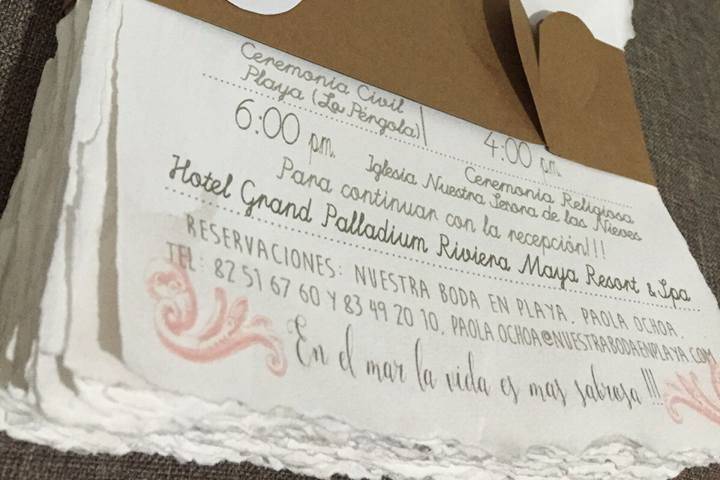 Ceremonia Civil
Playa (La Pérgola)
6:00 pm.
4:00 pm.
Ceremonia Religiosa
Iglesia Nuestra Senora de las Nieves
Para continuar con la recepción!!!
Hotel Grand Palladium Riviera Maya Resort & Spa
RESERVACIONES: NUESTRA BODA EN PLAYA, PAOLA OCHOA,
TEL: 82 51 67 60 Y 83 49 20 10, PAOLA.OCHOA@NUESTRABODAENPLAYA.COM
En el mar la vida es mas sabrosa!!!